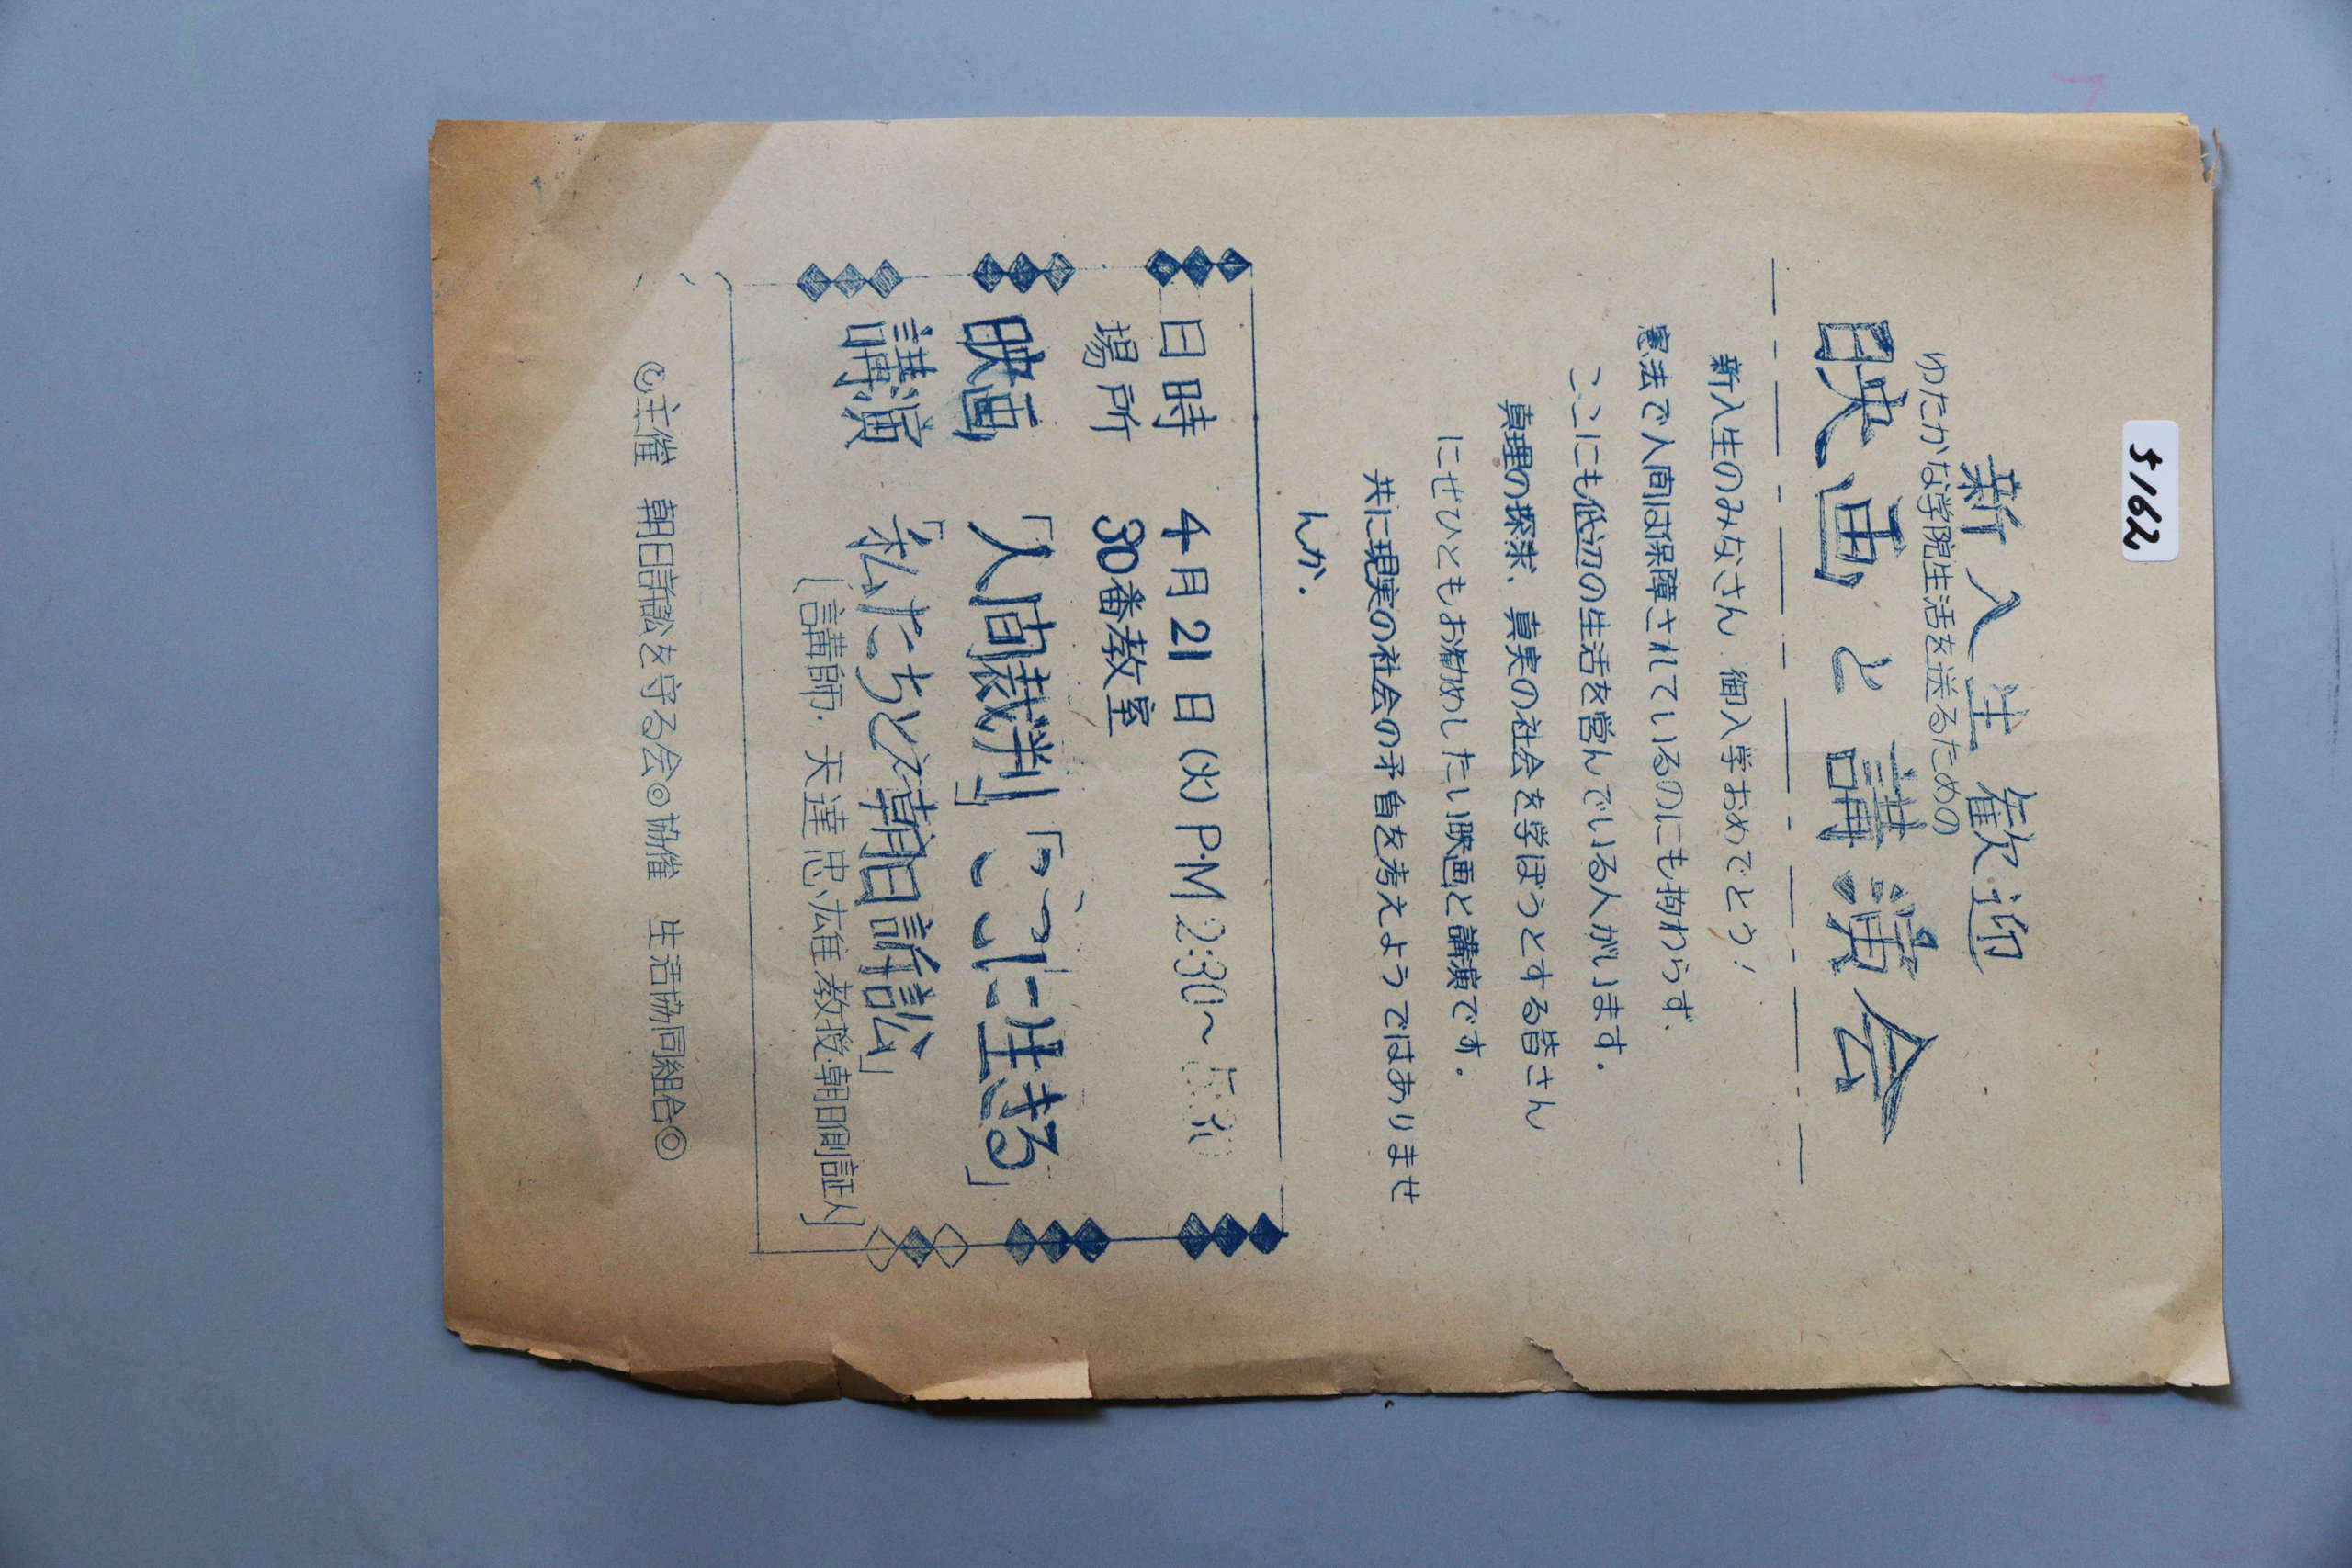 5162
新入生歓迎
ゆたかな学院生活を送るための
映画と講演会
新入生のみなさん 御入学おめでとう!
憲法で人間は保障されているのにも拘わらず、
ここにも低辺の生活を営んでいる人がいます.
真理の探求、真実の社会を学ぼうとする皆さん
にぜひともお勧めしたい映画と講演です.
共に現実の社会の矛盾を考えようではありませ
んか.
日時 4月21日(火) P.M 2:30〜5:30
場所 30番教室
映画 「人間裁判」「ここに生きる」
講演 「私たちと朝日訴訟」
(講師. 天達忠雄教授・朝日側証人)
◎主催 朝日訴訟を守る会◎協催 生活協同組合◎